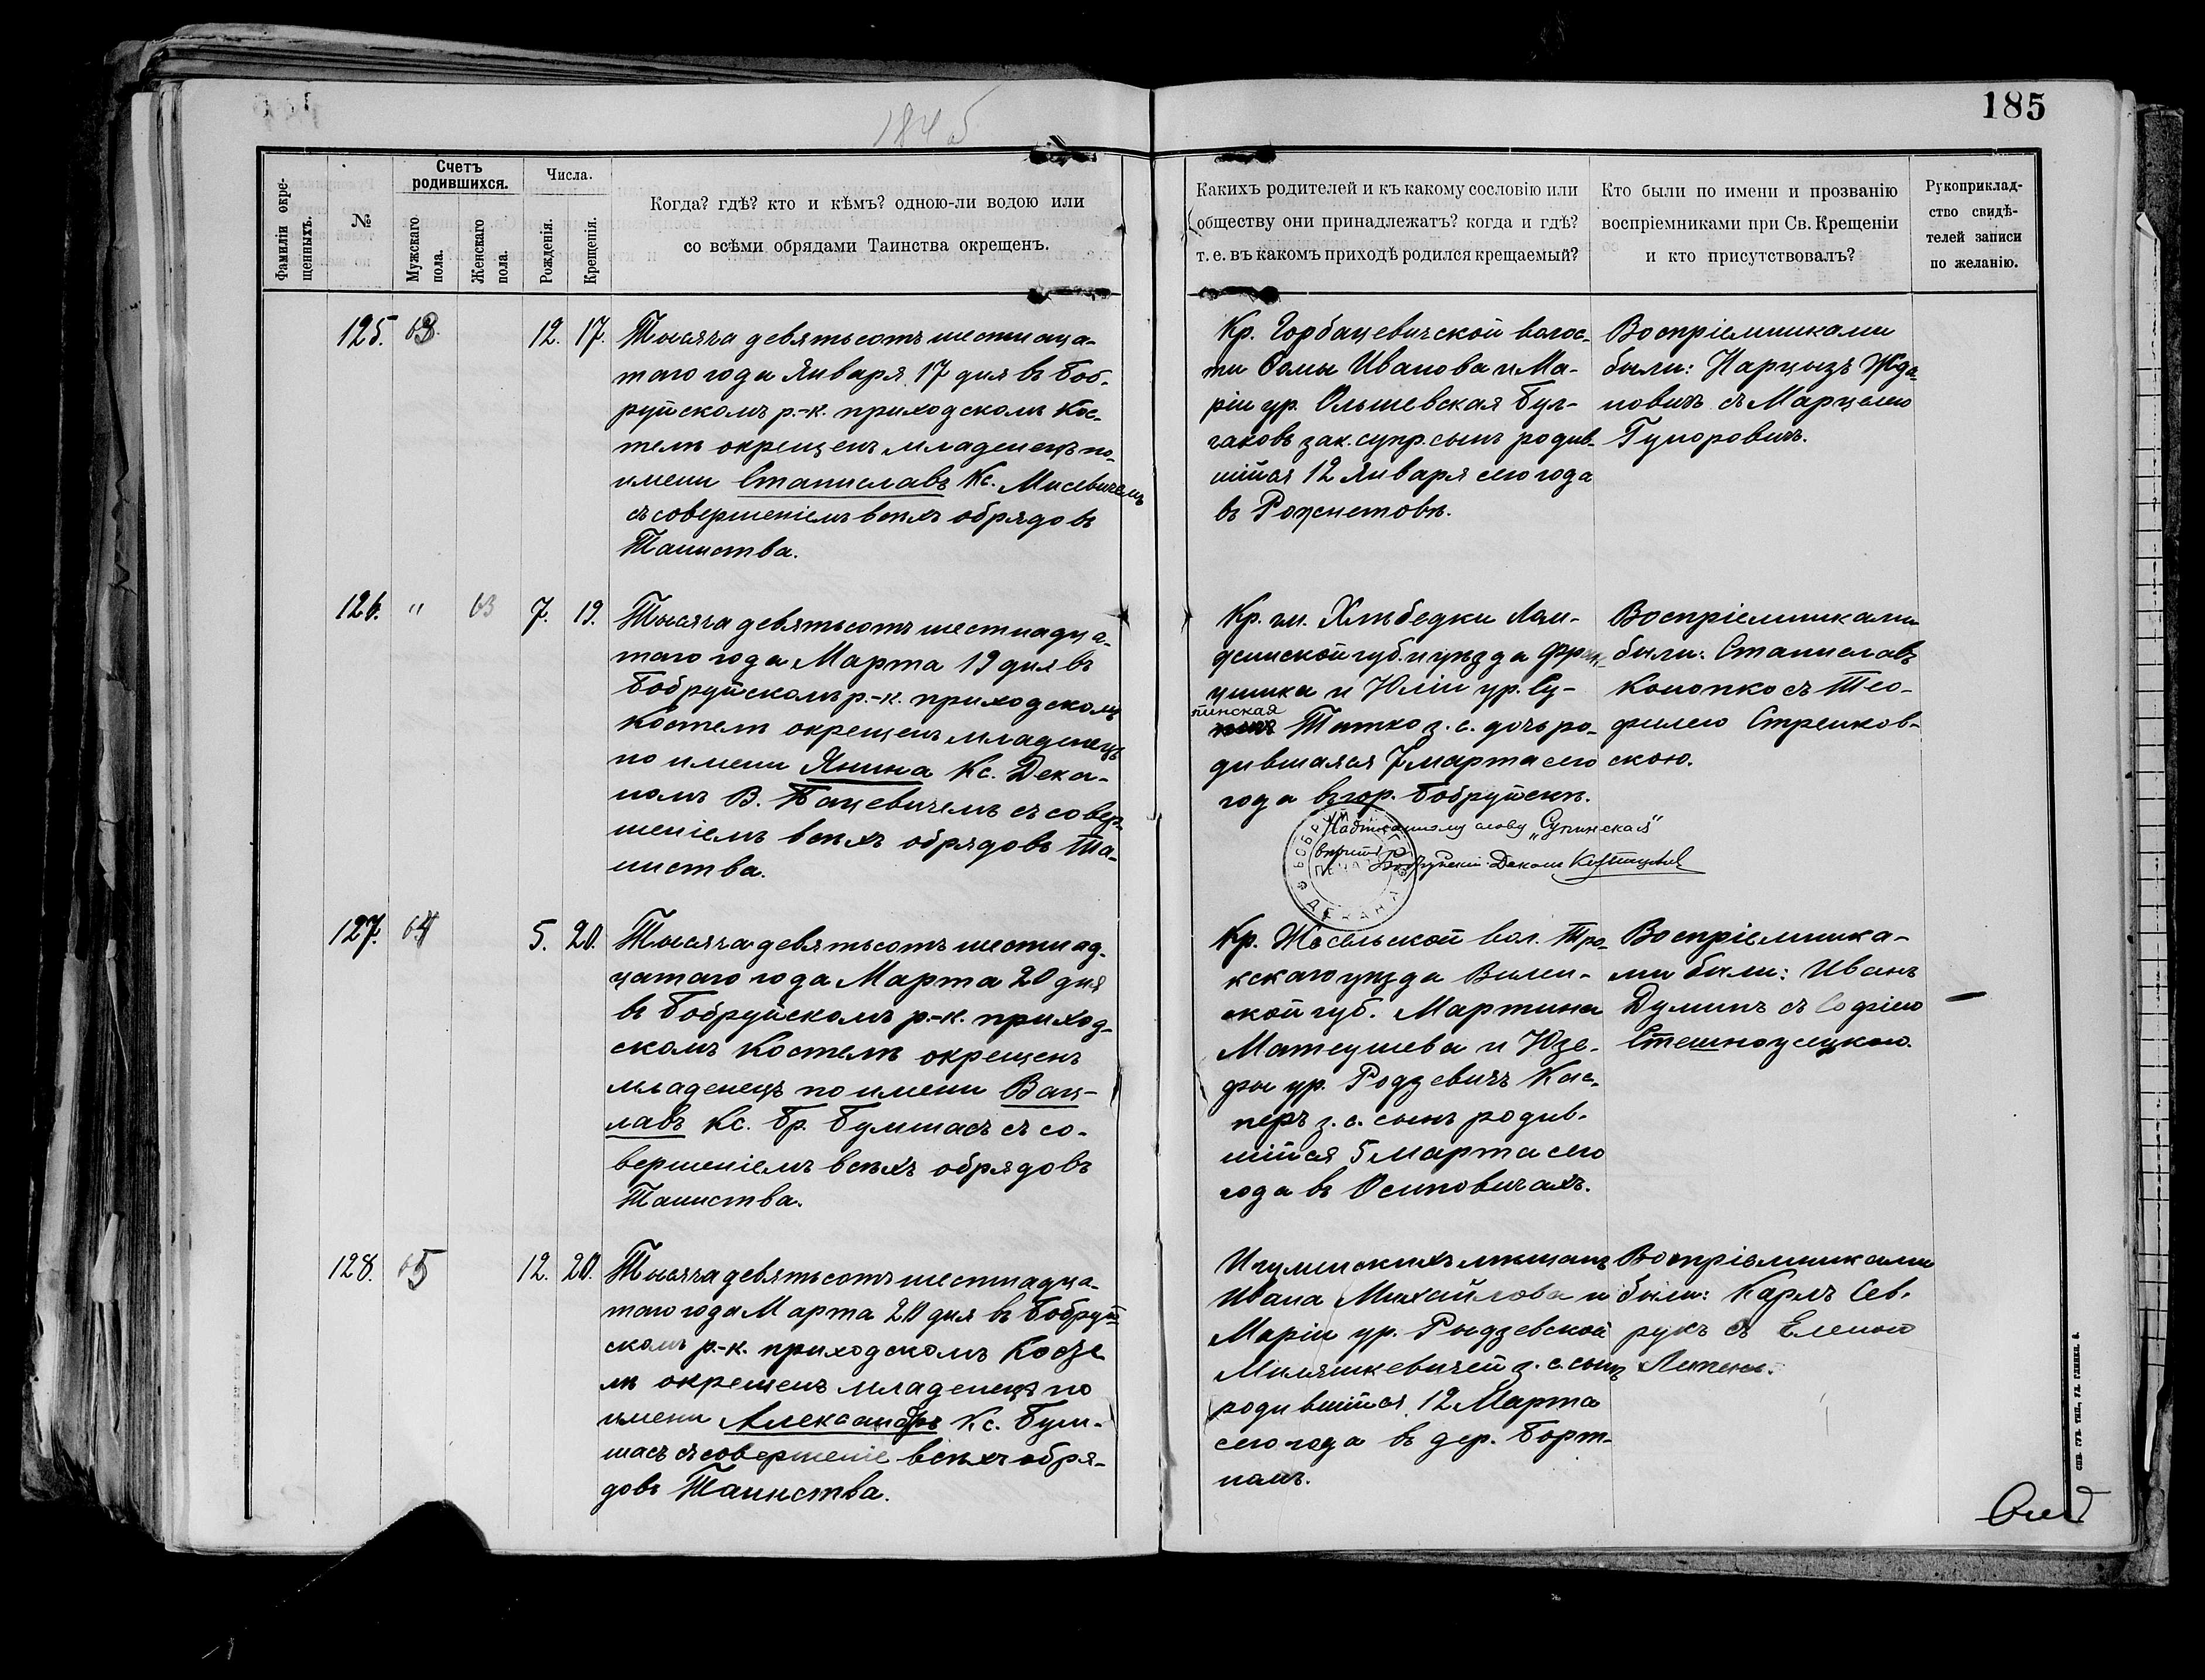 185
1845
Фамиліи окре-
щенныхъ.
№
Счетъ
родившихся.
Мужскаго
пола.
Женскаго
пола.
Числа.
Рожденія.
Крещенія.
Когда? гдѣ? кто и кѣмъ? одною-ли водою или
со всѣми обрядами Таинства окрещенъ.
Какихъ родителей и къ какому сословію или
обществу они принадлежатъ? когда и гдѣ?
т. е. въ какомъ приходѣ родился крещаемый?
Кто были по имени и прозванію
воспріемниками при Св. Крещеніи
и кто присутствовалъ?
Рукоприклад-
ство свидѣ-
телей записи
по желанію.
125. 63. 12. 17.
Тысяча девятьсотъ шестнадца-
таго года Января 17 дня въ Боб-
руйскомъ р.-к. приходскомъ Кос-
телѣ окрещенъ младенецъ по
имени Станиславъ Кс. Мисевичемъ
съ совершеніемъ всѣхъ обрядовъ
Таинства.
Кр. Горбацевичской волос-
ти Ѳомы Иванова и Ма-
ріи ур. Ольшевская Бул-
гаковъ зак. супр. сынъ родив-
шійся 12 Января сего года
въ
Воспріемниками
были: Нарцызъ Жда-
новичъ съ Марцелею
126. " 63 7. 19.
Тысяча девятьсотъ шестнадца-
таго года Марта 19 дня въ
Бобруйскомъ р.-к. приходскомъ
Костелѣ окрещенъ младенецъ
по имени Янина Кс. Дека-
номъ В. Бацевичемъ съ совер-
шеніемъ всѣхъ обрядовъ Та-
инства.
Кр. гм. Хлѣбедки Лом-
жинской губ. и уѣзда Фран-
цишка и Юліи ур. Су-
пинская
Татко з. с. дочь ро-
дившаяся 7 марта сего
года въ гор. Бобруйскѣ.
Надписанному слову „Супинская"
вѣрить Бобруйскій Деканъ
Воспріемниками
были: Станиславъ
Конопко съ Тео-
филею Стренков-
скою.
127. 64 5. 20.
Тысяча девятьсотъ шестнад-
цатаго года Марта 20 дня
въ Бобруйскомъ р.-к. приход-
скомъ Костелѣ окрещенъ
младенецъ по имени Вац-
лавъ Кс. Бр. Бумшасъ съ со-
вершеніемъ всѣхъ обрядовъ
Таинства.
Кр. Жосельской вол. Тро-
кскаго уѣзда Вилен-
ской губ. Мартина
Матеушева и Юзе-
фы ур. Родзевичъ Кас-
перъ з. с. сынъ родив-
шійся 5 марта сего
года въ Осиповичахъ.
Воспріемника-
ми были: Иванъ
Думинъ съ Софіею
128. 65 12. 20.
Тысяча девятьсотъ шестнадца-
таго года Марта 20 дня въ Бобруй-
скомъ р.-к. приходскомъ Косте
лѣ окрещенъ младенецъ по
имени Александръ Кс. Бум-
шасъ съ совершеніе всѣхъ обря-
довъ Таинства.
Игуменскихъ мѣщанъ
Ивана Михайлова и
Маріи ур. Рыдзевской
Милашкевичей з. с. сынъ
родившійся 12 Марта
сего года въ дер. Борт-
номъ.
Воспріемниками
были: Карлъ Сев-
рукъ съ Еленою
СПБ. ГУБ. ТИП., УЛ. ГЛИНКИ, 8.